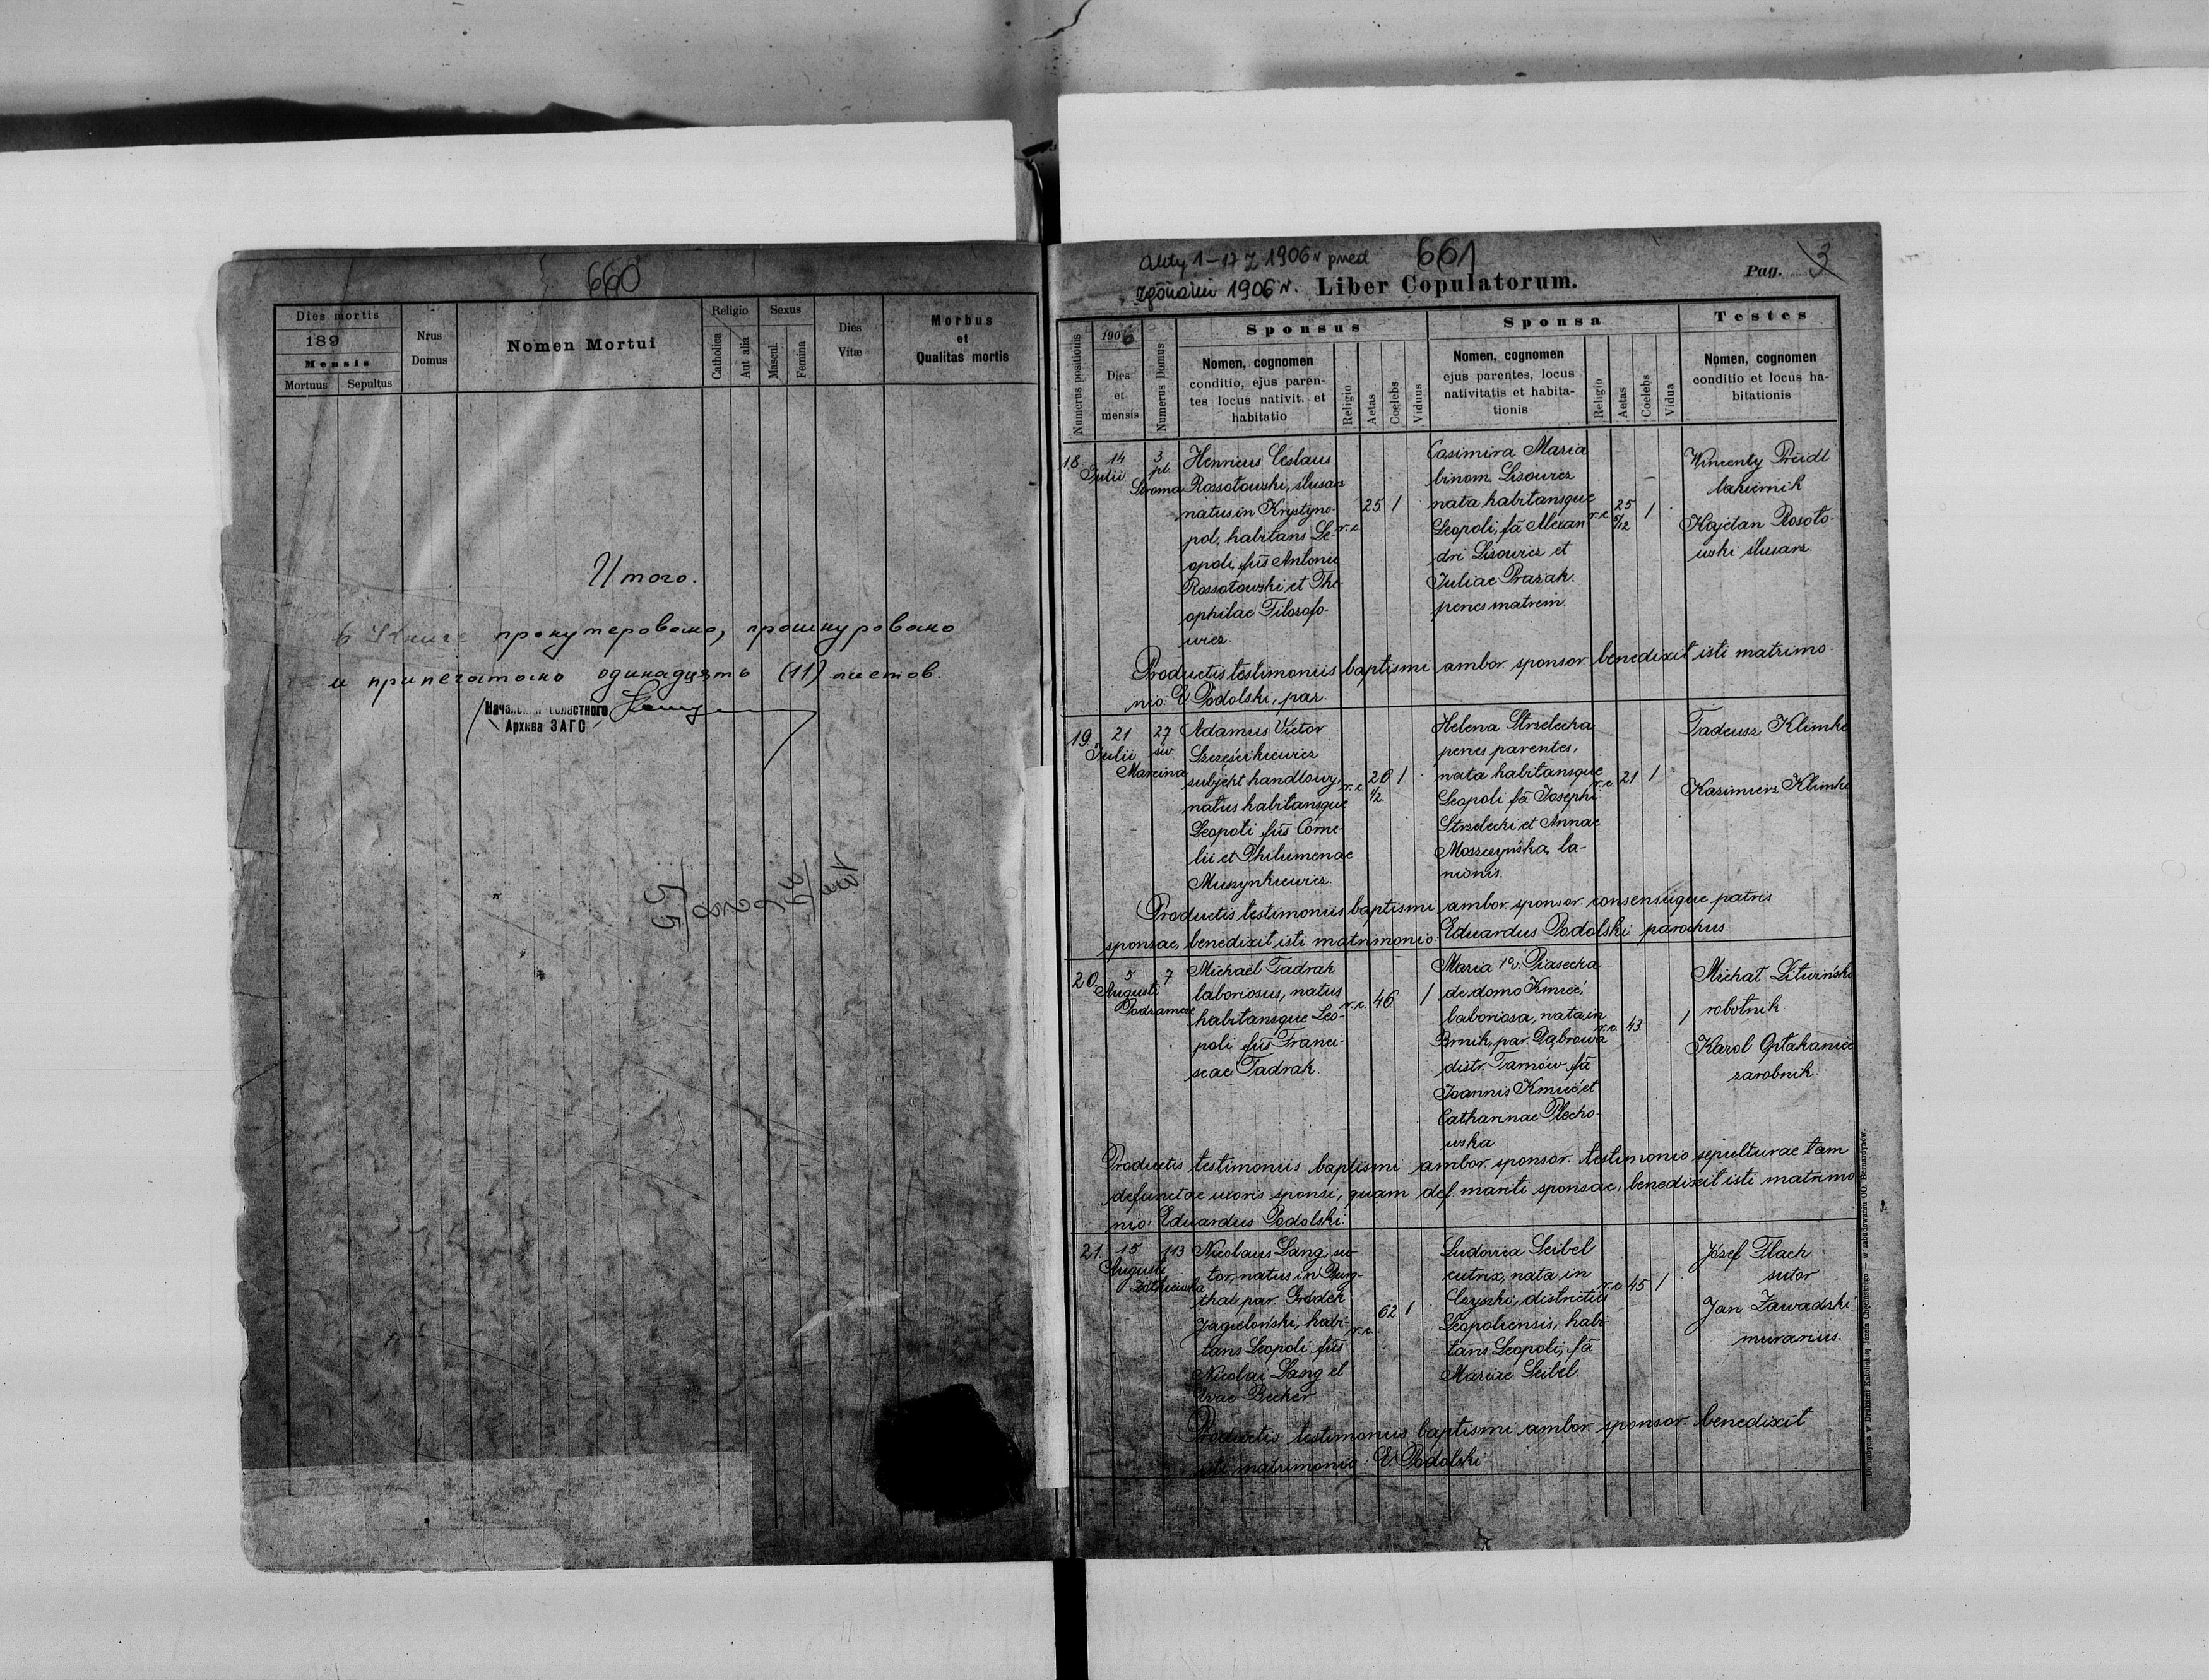 660
Dies mortis
189
Mensis
Mortuus Sepultus
Nrus
Domus
Nomen Mortui
Religio
Catholica
Aut alia
Sexus
Mascul.
Femina
Dies
Vitæ
Morbus
et
Qualitas mortis
Итого.
В Книге пронумеровано, прошнуровано
и припечатано одинадцять (11) листов.
Началь областного
Архива ЗАГС
Akty 1-17 z 1906 r przed
zgonami 1906 r.
661
Liber Copulatorum.
Pag. 3
Numerus positionis
1906
Dies
et
mensis
Numerus Domus
Sponsus
Nomen, cognomen
conditio, ejus paren-
tes locus nativit. et
habitatio
Religio
Aetas
Coelebs
Viduus
Sponsa
Nomen, cognomen
ejus parentes, locus
nativitatis et habita-
tionis
Religio
Aetas
Coelebs
Vidua
Testes
Nomen, cognomen
conditio et locus ha-
bitationis
18.
14
Julii
3
pl.
Stroma
Henricus Ceslaus
Rossołowski, ślusarz
natus in Krystyno-
pol, habitans Le-
opoli, fũs Antonii
Rossołowski et The-
ophilae Filozofo-
wicz.
r. c.
25
1
Casimira Maria
binom. Lisowicz
nata habitansque
Leopoli, fã Alexan
dri Lisowicz et
Juliae Prażak.
penes matrem.
r. c.
25
5/12
1
Wincenty Preidl
lakiernik
Kajetan Rosoło-
wski ślusarz.
Productis testimoniis baptismi ambor. sponsor. benedixit isti matrimo-
nio: E Podolski, par.
19.
21
Julii
27
św.
Marcina
Adamus Victor
Szcześcikiewicz
subjekt handlowy,
natus habitansque
Leopoli fũs Corne-
lii et Philumenae
Muszynkiewicz.
r. c.
26
1/2
1
Helena Strzelecka
penes parentes,
nata habitansque
Leopoli fã Josephi
Strzelecki et Annae
Moszczyńska, la-
nionis.
r. c.
21
1
Tadeusz Klimke
Kazimierz Klimke
Productis testimoniis baptismi ambor. sponsor. consensuque patris
sponsae, benedixit isti matrimonio: Eduardus Podolski parochus.
20.
5
Augusti
7
Podzamcze
Michaël Tadrak
laboriosus, natus
habitansque Leo-
poli fũs Franci-
scae Tadrak.
r. c.
46
1
Maria 1º v. Piasecka
de domo Kmieć,
laboriosa, nata in
Brnik, par. Dąbrowa
distr. Tarnów fã
Joannis Kmieć et
Catharinae Plecho-
wska.
r. c.
43
1
Michał Litwiński
robotnik.
Karol
zarobnik.
Productis testimoniis baptismi ambor. sponsor. testimonio sepulturae tam
defunctae uxoris sponsi, quam def. mariti sponsae, benedixit isti matrimo
nio: Eduardus Podolski.
21.
15
Augusti
113
Żółkiewska
Nicolaus Lang, su-
tor, natus in Burg-
thal par. Gródek
Jagieloński, habi-
tans Leopoli fũs
Nicolai Lang et
Evae Becher
r. c.
62
1
Ludovica Seibel
cutrix, nata in
Czyszki, districtus
Leopoliensis, habi-
tans Leopoli, fã
Mariae Seibel.
r. c.
45
1
Józef Flach
sutor
Jan Zawadzki
murarius.
Productis testimoniis baptismi ambor. sponsor. benedixit
isti matrimonio: E. Podolski